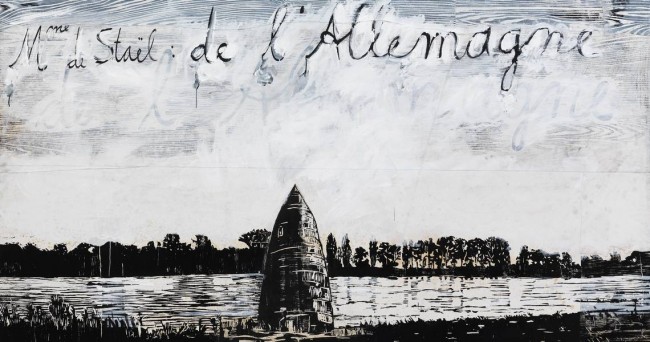 Mme de Staël : de l'Allemagne
de l'Allemagne